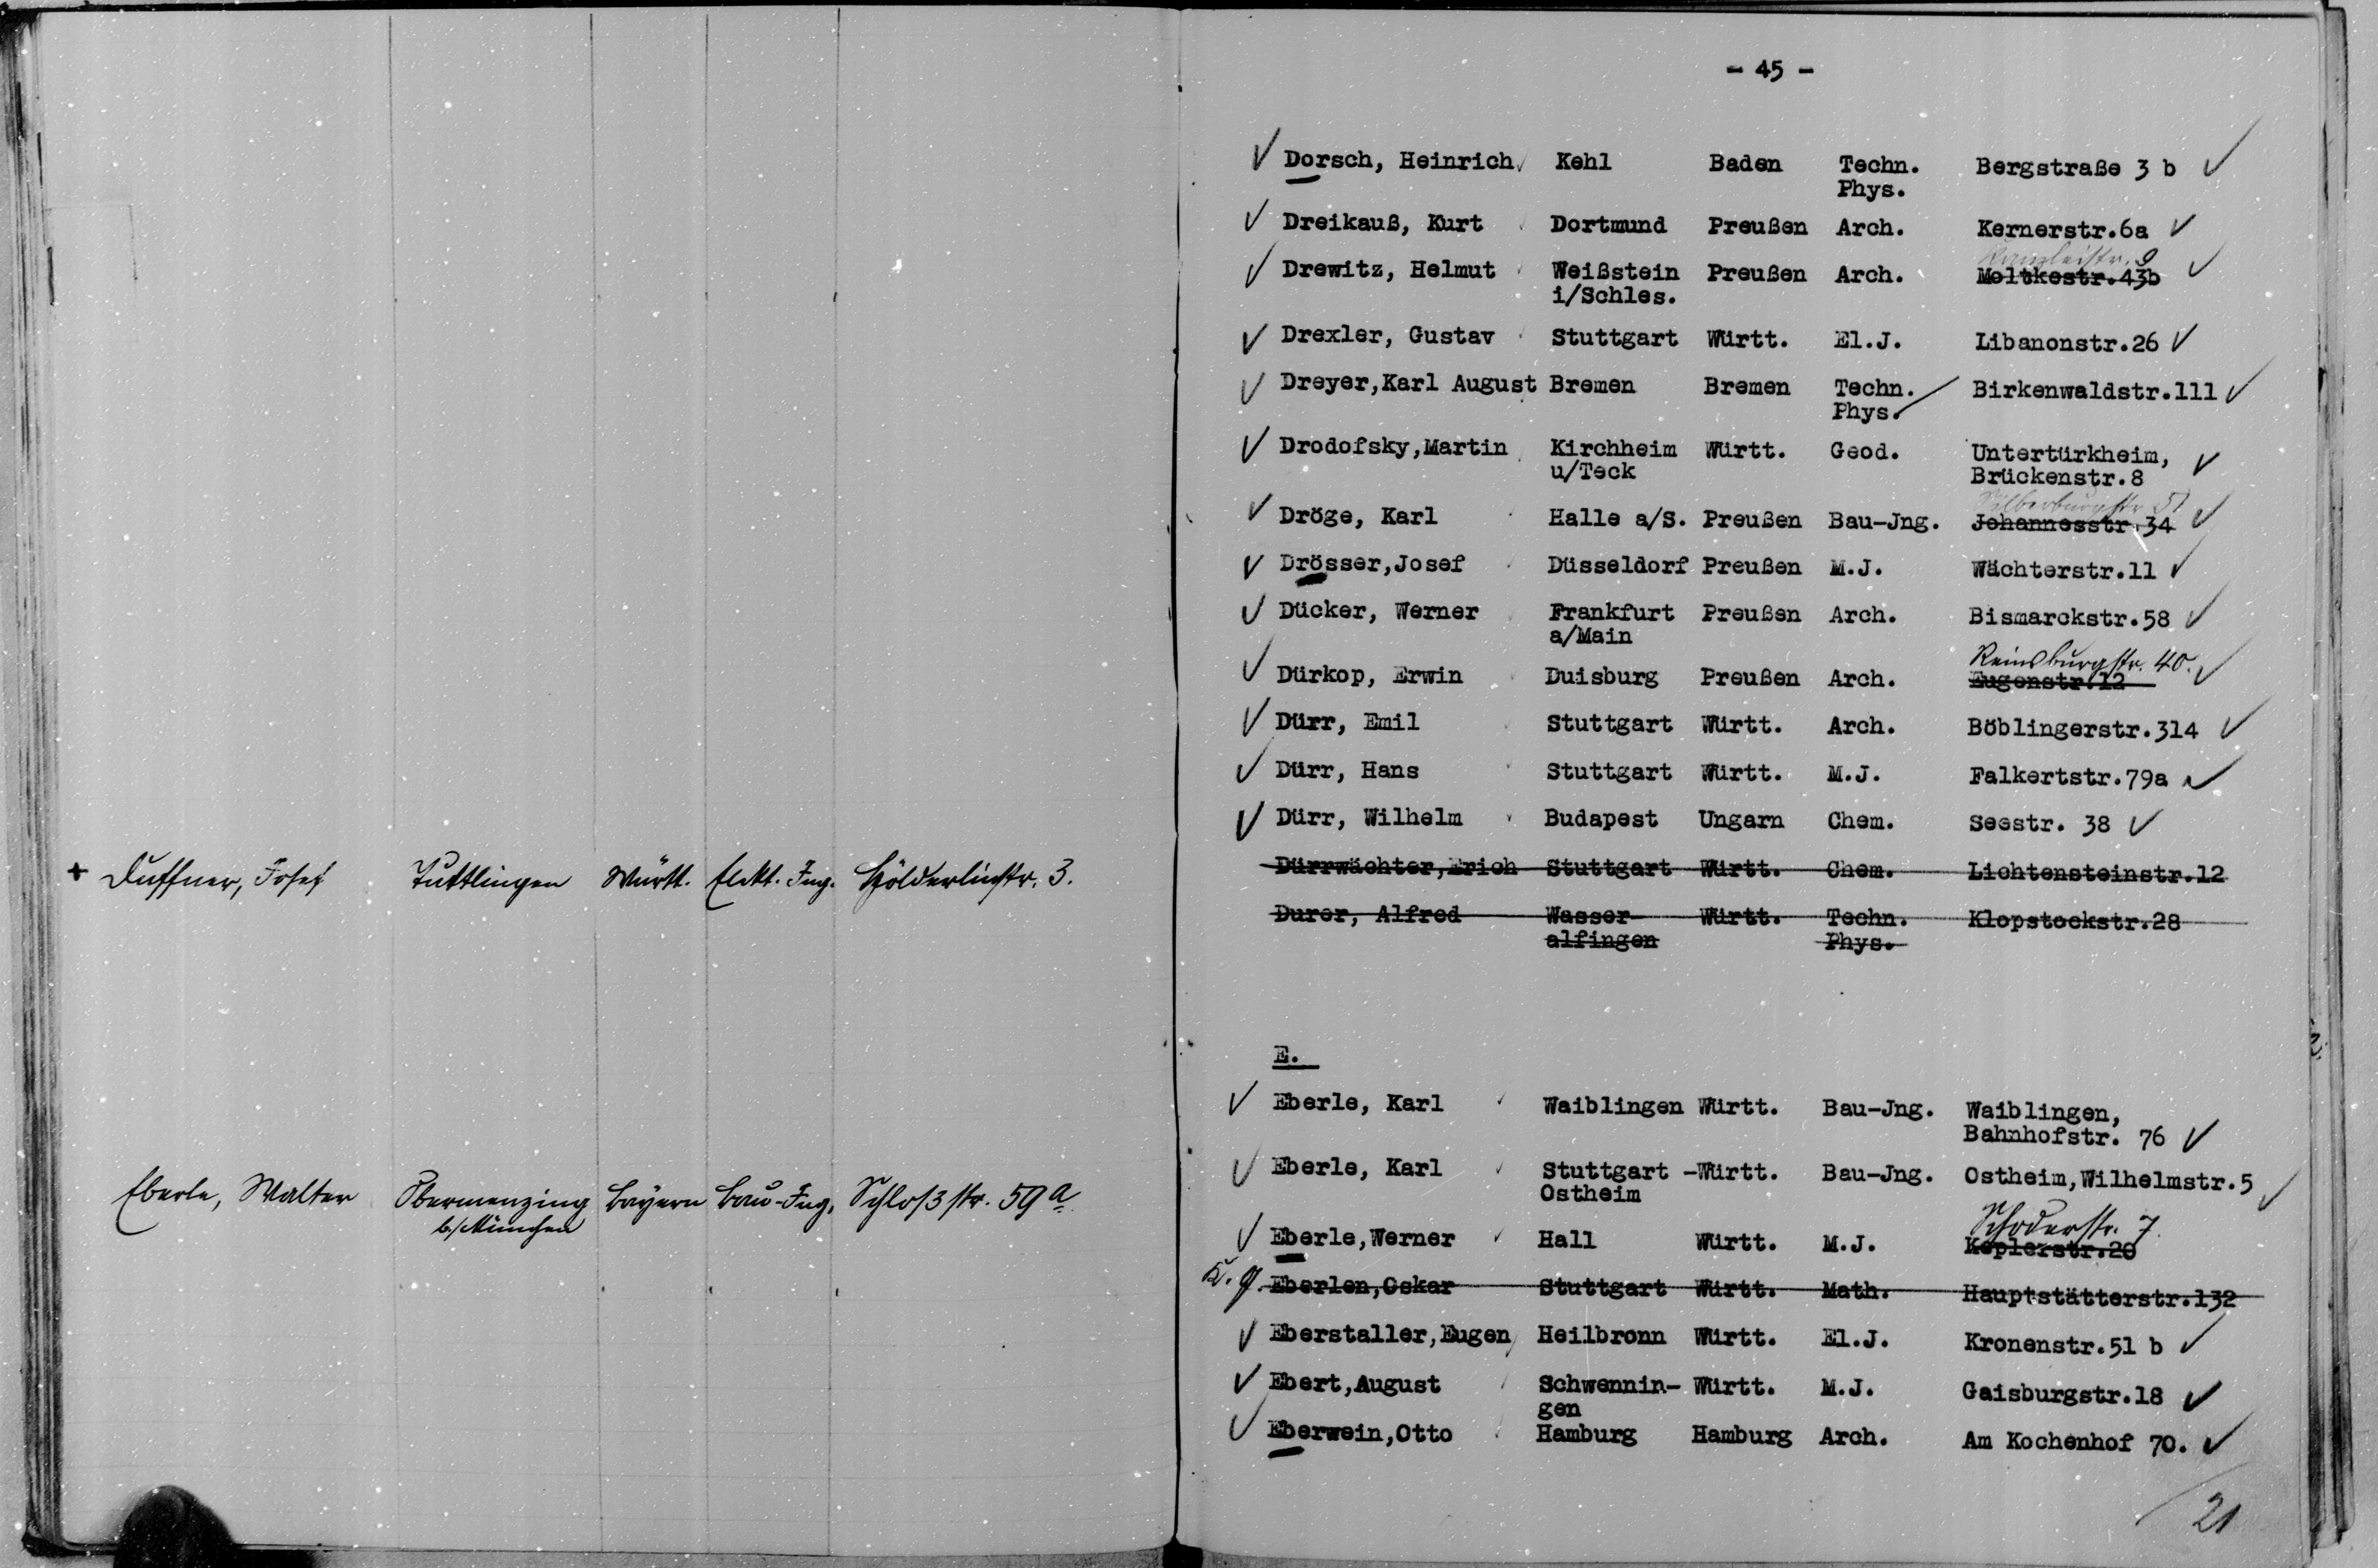 + Duffner, Josef Tuttlingen Württ. Elekt. Ing. Hölderlinstr. 3.
Eberle, Walter Obermenzing Bayern Bau-Ing. Schloßstr. 59a
b/München
- 45 -
Dorsch, Heinrich Kehl Baden Techn. Bergstraße 3 b
Phys.
Dreikauß, Kurt Dortmund Preußen Arch. Kernerstr.6a
Kanzleistr. 9
Drewitz, Helmut Weißstein Preußen Arch. Moltkestr.43b
i/Schles.
Drexler, Gustav Stuttgart Württ. El.J. Libanonstr.26
Dreyer,Karl August Bremen Bremen Techn. Birkenwaldstr.111
Phys.
Drodofsky,Martin Kirchheim Württ. Geod. Untertürkheim,
u/Teck Brückenstr.8
Silberburgstr. 51
Dröge, Karl Halle a/S. Preußen Bau-Jng. Johannesstr.34
Drösser,Josef Düsseldorf Preußen M.J. Wächterstr.11
Dücker, Werner Frankfurt Preußen Arch. Bismarckstr.58
a/Main
Reinsburgstr. 40.
Dürkop, Erwin Duisburg Preußen Arch. Eugenstr.12
Dürr, Emil Stuttgart Württ. Arch. Böblingerstr.314
Dürr, Hans Stuttgart Württ. M.J. Falkertstr.79a
Dürr, Wilhelm Budapest Ungarn Chem. Seestr. 38
Dürrwächter,Erich Stuttgart Württ. Chem. Lichtensteinstr.12
Durer, Alfred Wasser- Württ. Techn. Klopstockstr.28
alfingen Phys.
E.
Eberle, Karl Waiblingen Württ. Bau-Jng. Waiblingen,
Bahnhofstr. 76
Eberle, Karl Stuttgart -Württ. Bau-Jng. Ostheim,Wilhelmstr.5
Ostheim
Schoderstr. 7.
Eberle,Werner Hall Württ. M.J. Keplerstr.20
Eberlen,Oskar Stuttgart Württ. Math. Hauptstätterstr.132
Eberstaller,Eugen Heilbronn Württ. El.J. Kronenstr.51 b
Ebert,August Schwennin- Württ. M.J. Gaisburgstr.18
gen
Eberwein,Otto Hamburg Hamburg Arch. Am Kochenhof 70.
21